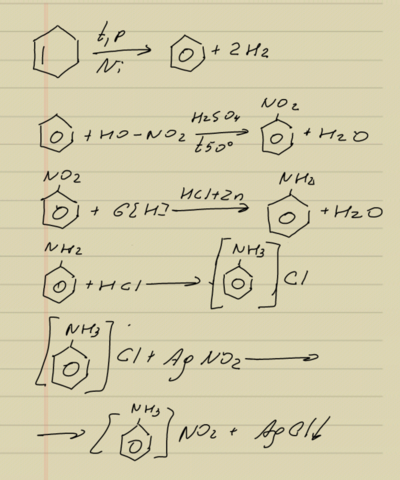 t,p
Ni
+ 2H2
+ HO-NO2 H2SO4 t50° NO2 + H2O
NO2 + 6[H] HCl+Zn NH2 + H2O
NH2 + HCl [NH3] Cl
[NH3] Cl + AgNO2
[NH3] NO2 + AgCl↓